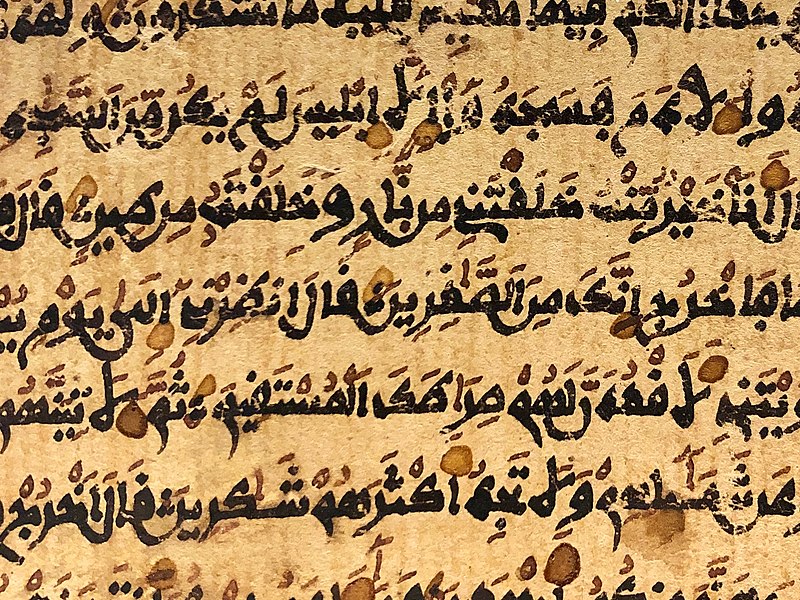 فيها معيش قليلا ما تشكرون ولقد
وا لادم فسجدوا إلا إبليس لم يكن من السجدين
قال أنا خير منه خلقتني من نار وخلقته من طين قال
فاخرج إنك من الصغرين قال أنظرني إلى يوم
ويتني لأقعدن لهم صرطك المستقيم ثم لأتينهم
وعن شمائلهم ولا تجد أكثرهم شكرين قال اخرج